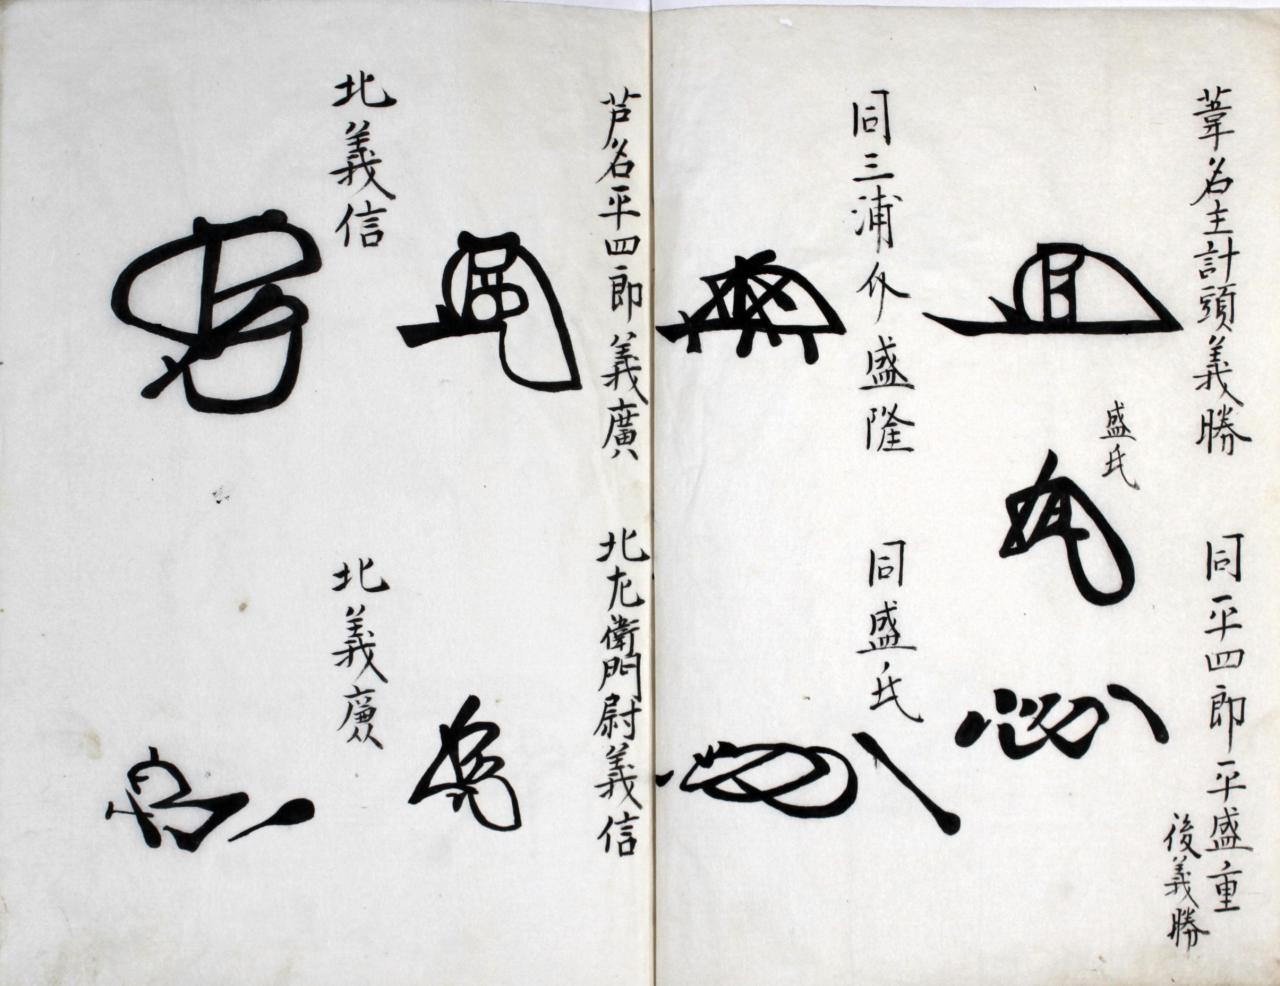 葦名主計頭義勝
盛氏
同平四郎平盛重
後義勝
同三浦介盛隆
同盛氏
芦名平四郎義廣
北左衛門尉義信
北義信
北義廣